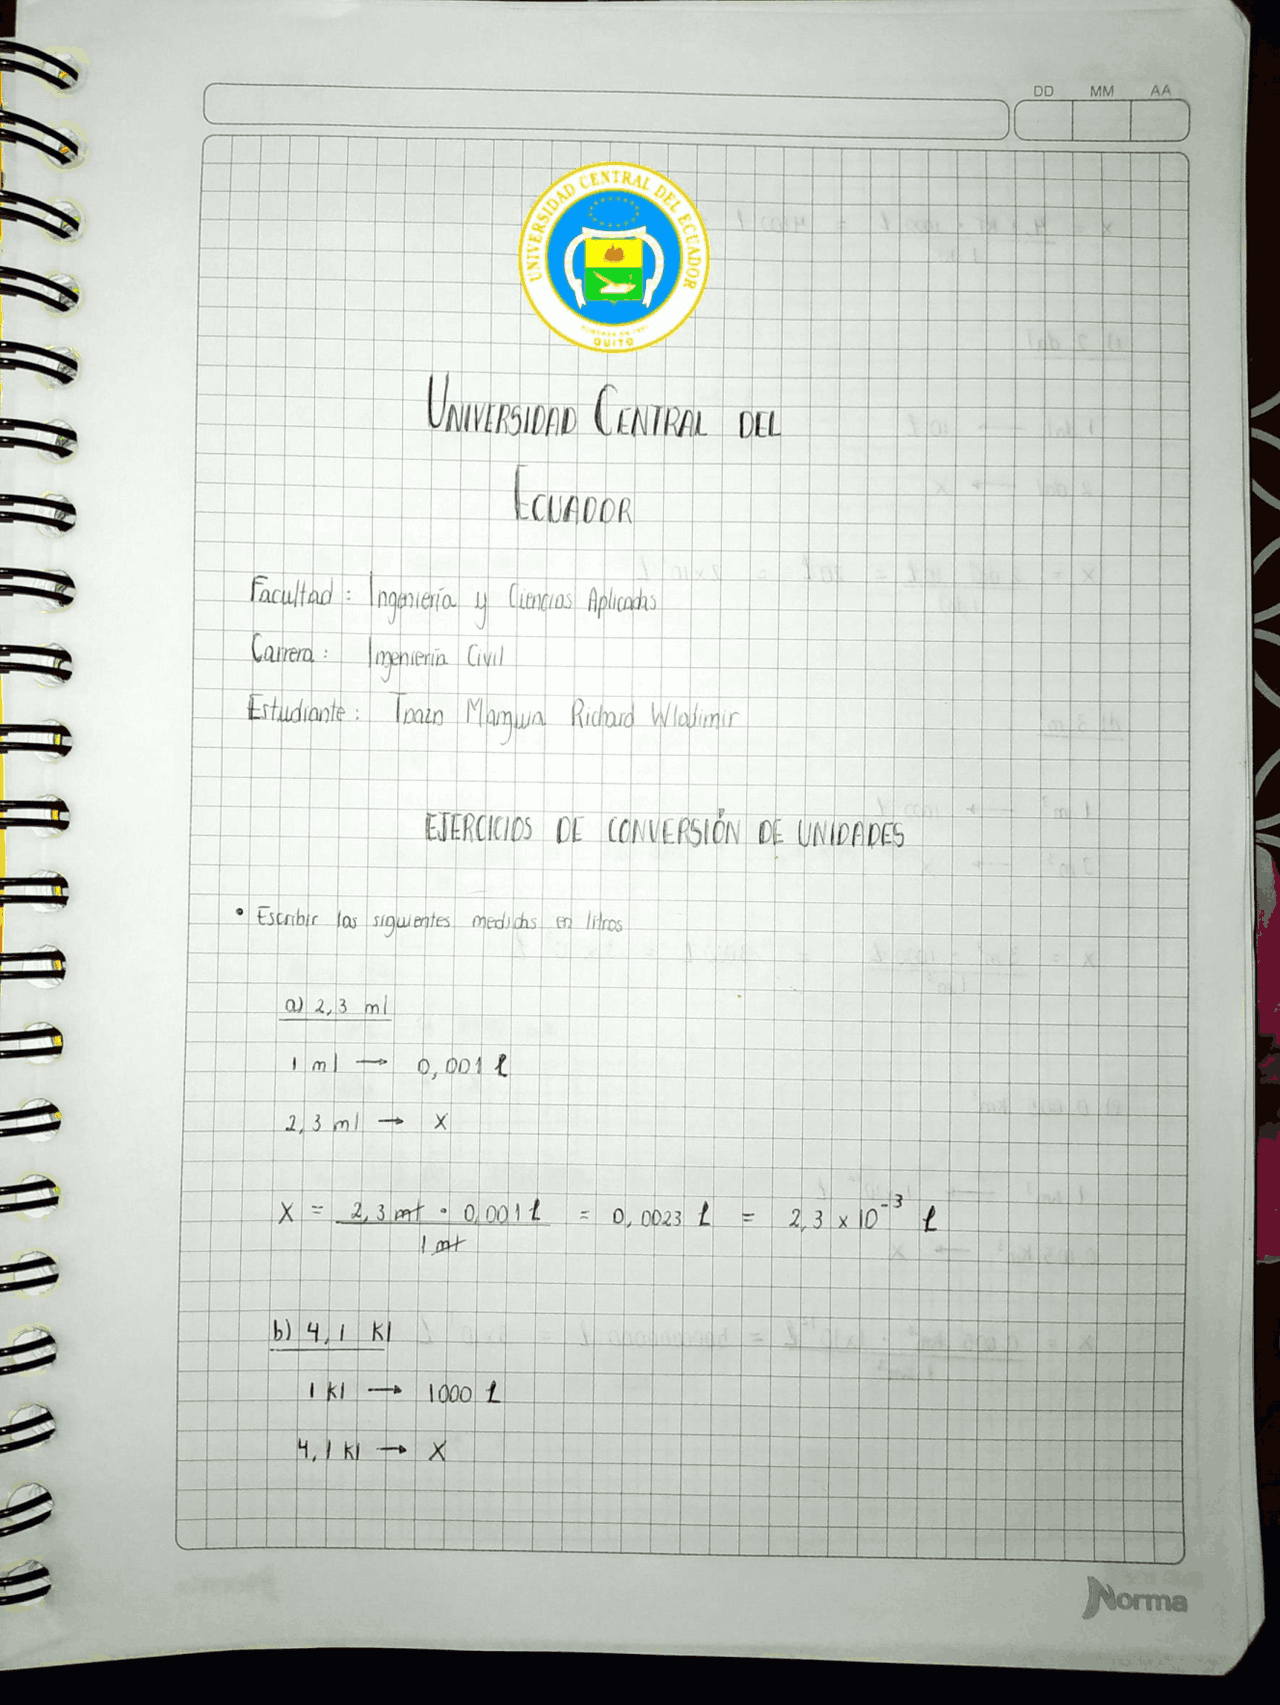 DD MM AA
UNIVERSIDAD CENTRAL DEL ECUADOR
QUITO
UNIVERSIDAD CENTRAL DEL
ECUADOR
Facultad: Ingeniería y Ciencias Aplicadas
Carrera: Ingeniería Civil
Estudiante: Richard Wladimir
EJERCICIOS DE CONVERSIÓN DE UNIDADES
• Escribir las siguientes medidas en litros
a) 2,3 ml
1 ml → 0,001 l
2,3 ml → X
X = 2,3 ml · 0,001 l = 0,0023 l = 2,3 x 10⁻³ l
1 ml
b) 4,1 Kl
1 Kl → 1000 l
4,1 Kl → X
Norma